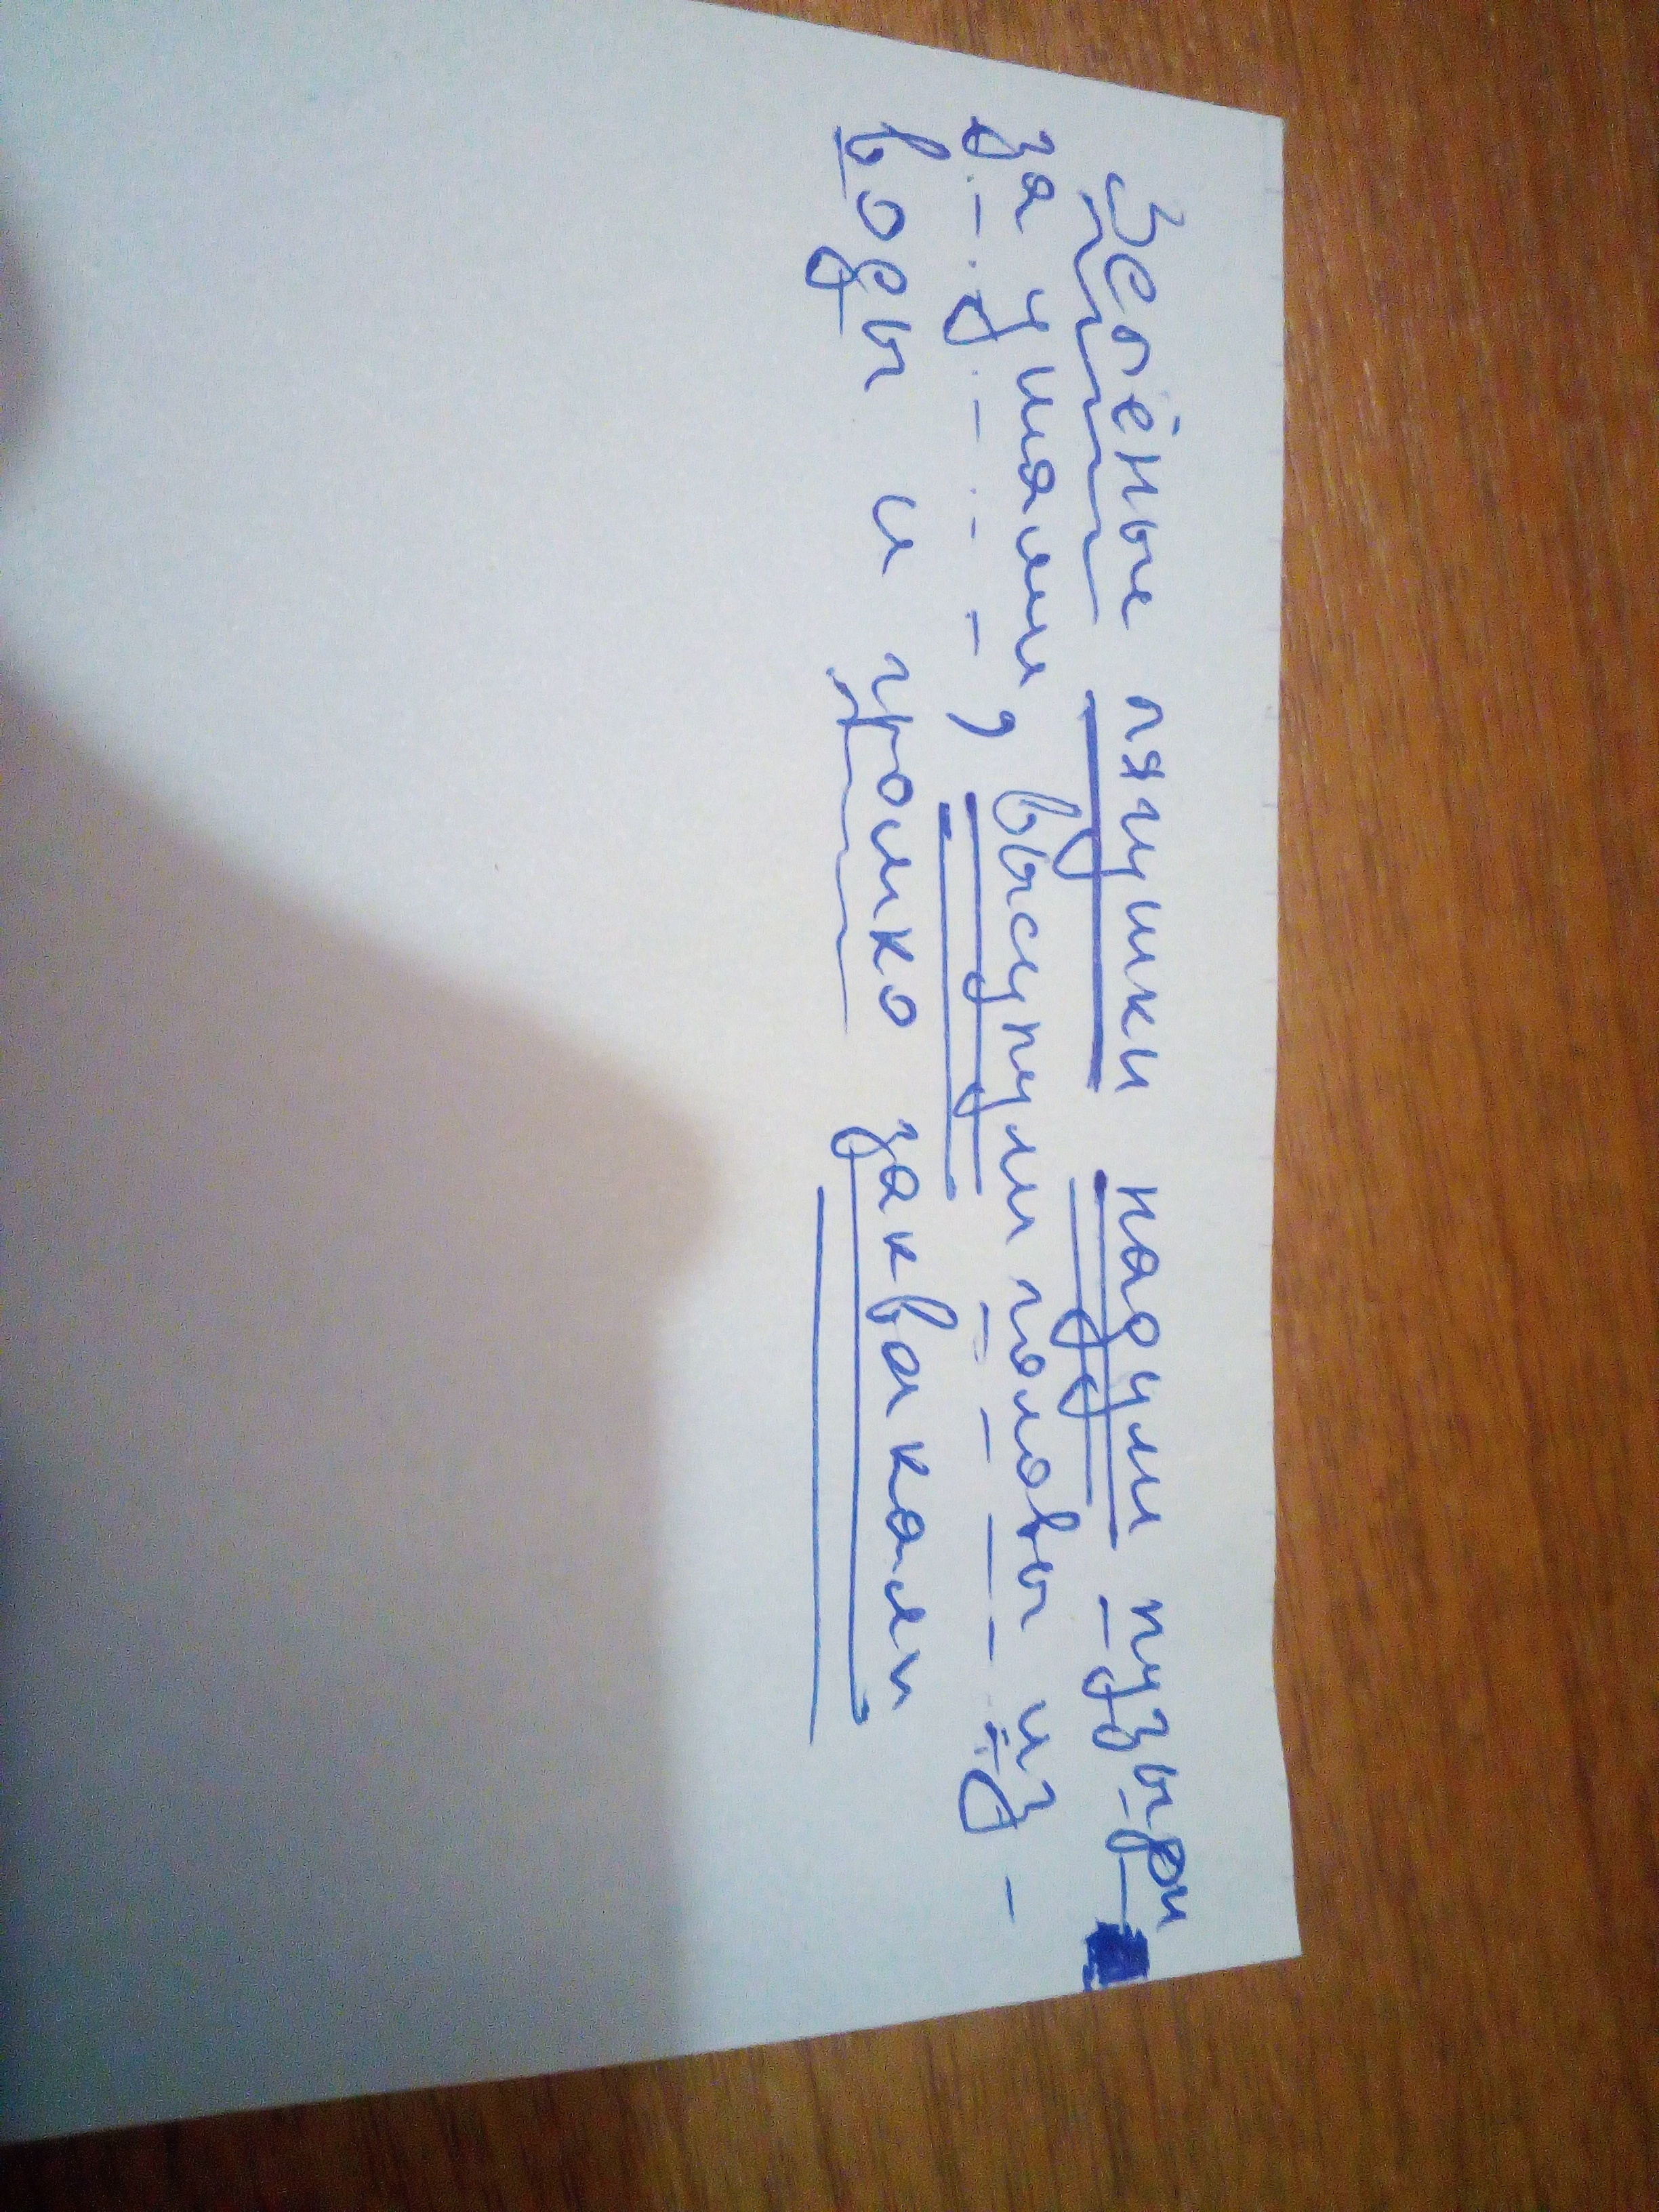 Зелёные лягушки надули пузыри
за ушами, высунули головы из -
воды и громко заквакали